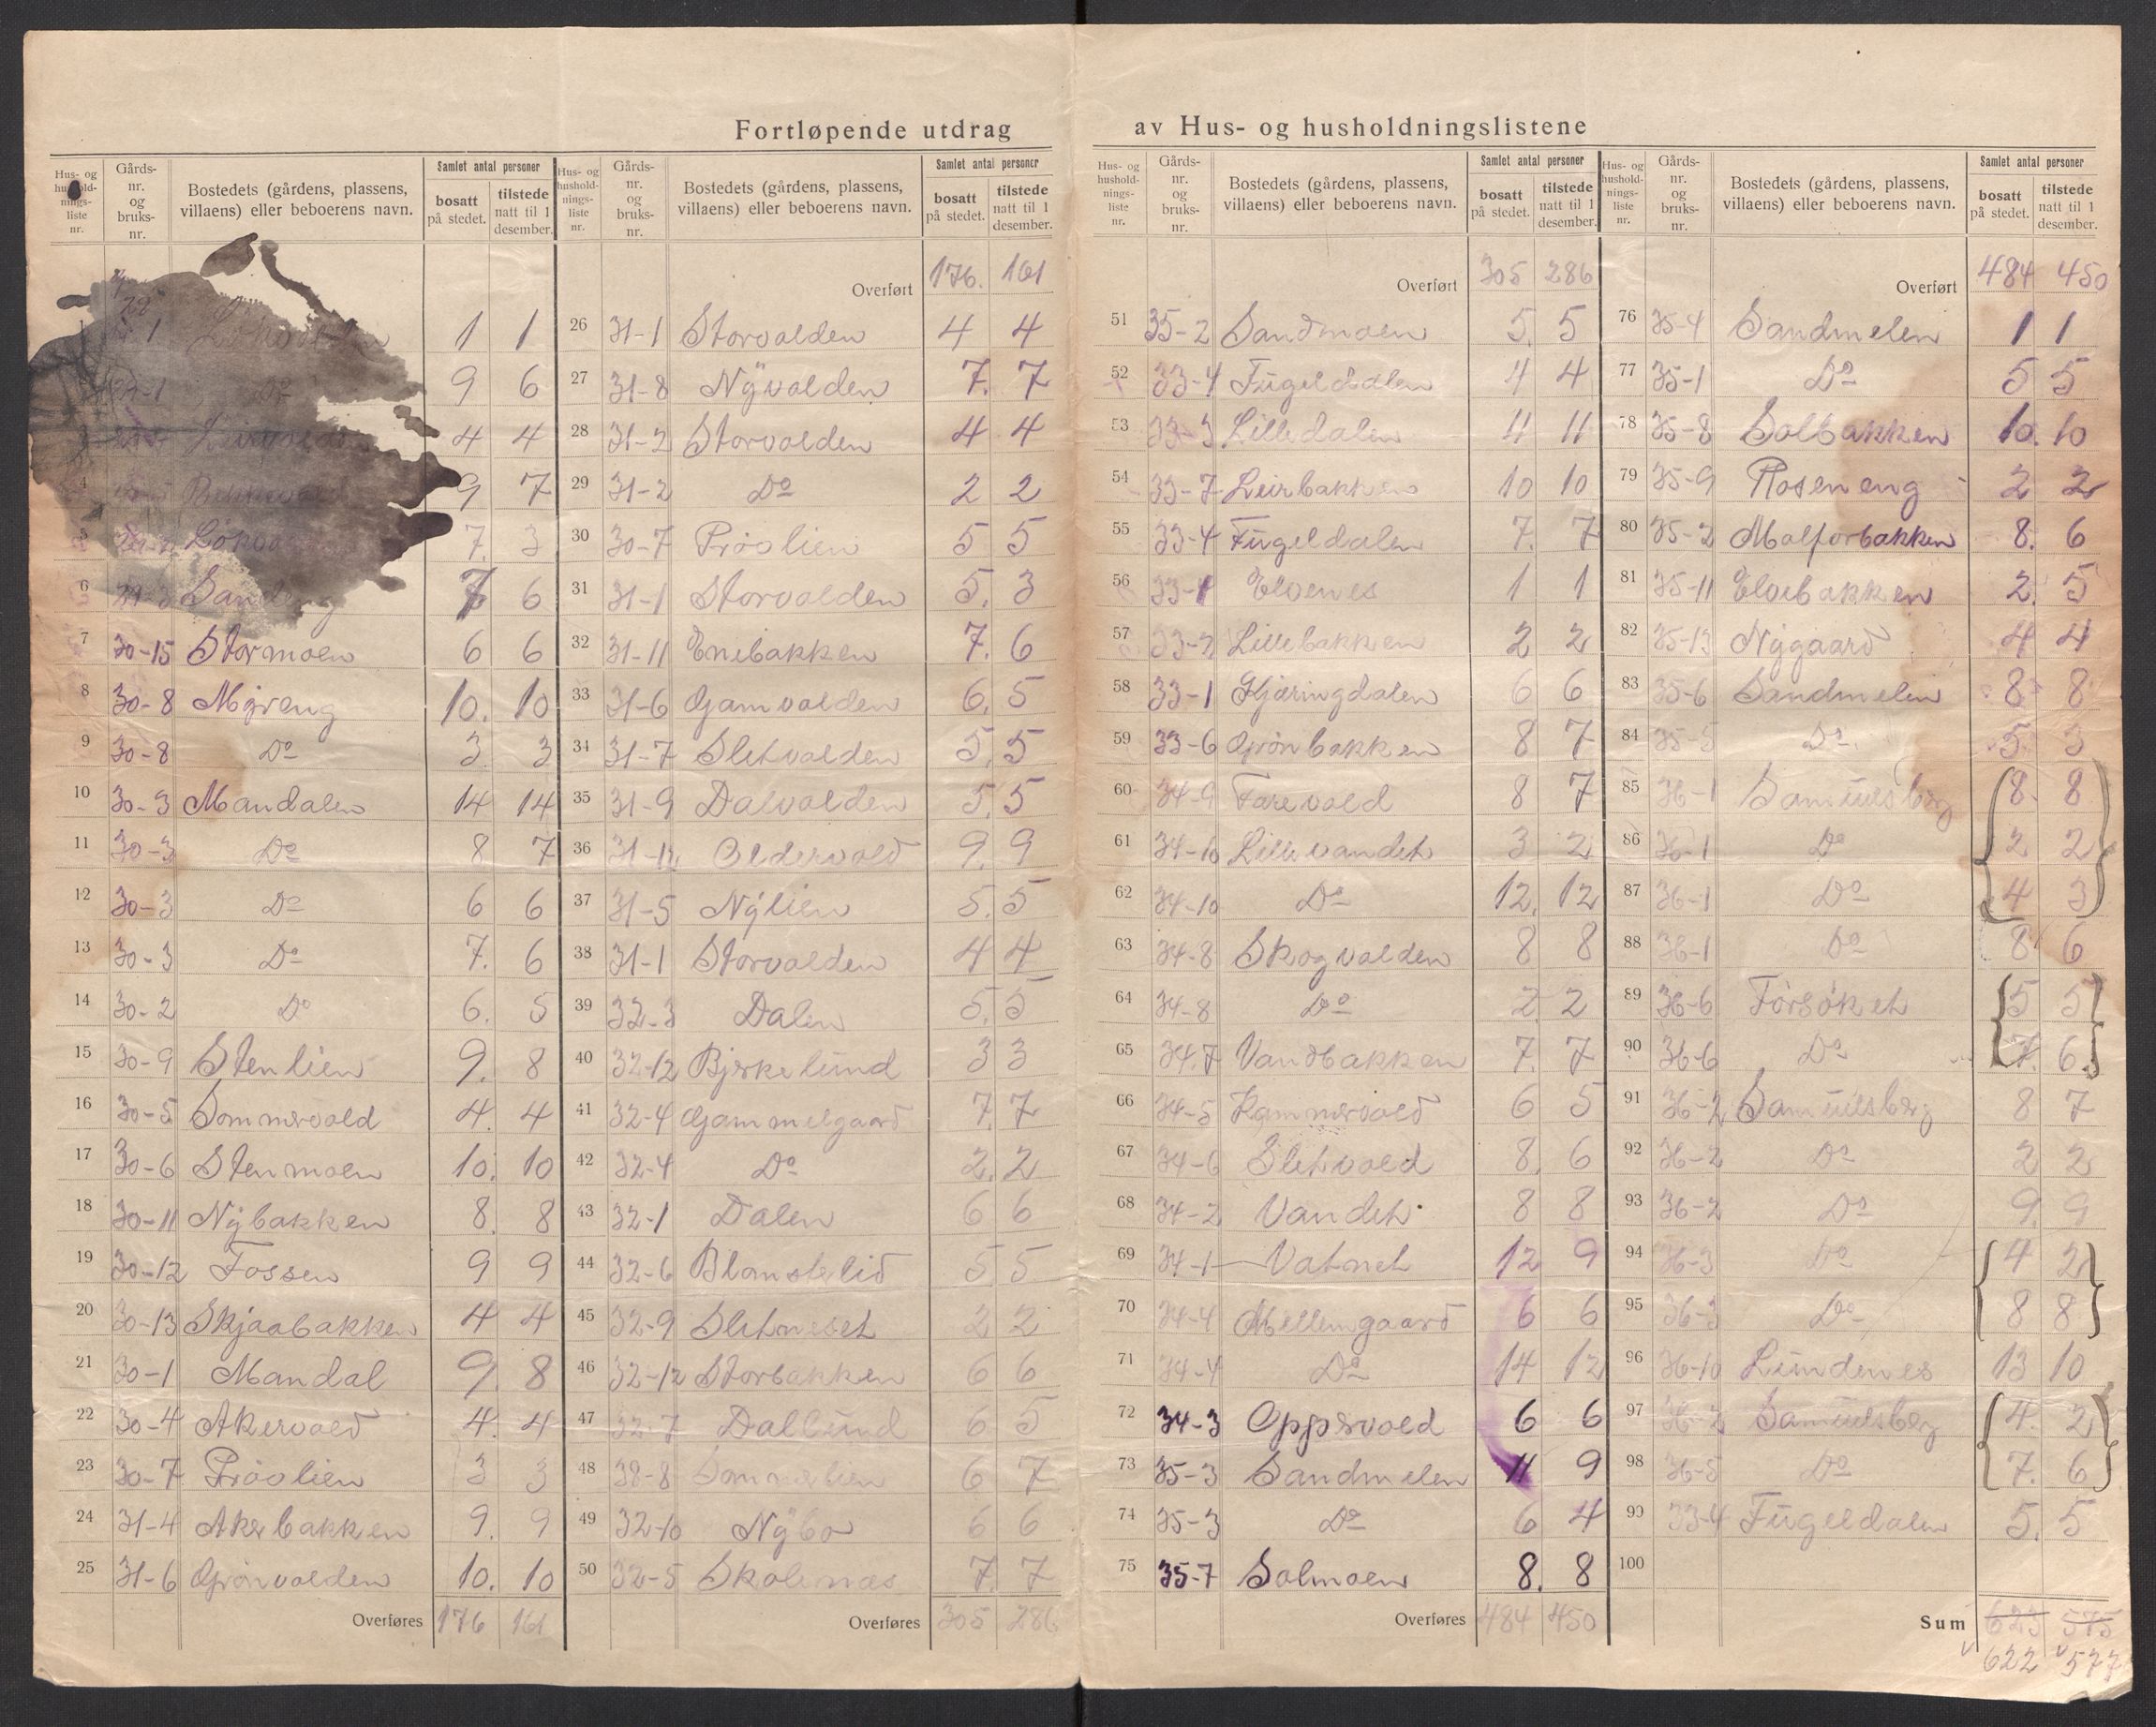 Fortløpende utdrag av Hus- og husholdningslistene
Hus- og husholdnings-liste nr. | Gårds-nr. og bruks-nr. | Bostedets (gårdens, plassens, villaens) eller beboerens navn. | Samlet antal personer | bosatt på stedet. | tilstede natt til 1 desember.
1 1 1
Do 9 6
4 4
4 9 7
5 7. 3
6 29-3 6
7 30-15 Stormoen 6 6
8 30-8 Myreng 10. 10
9 30-8 Do 3 3
10 30-3 Mandalen 14 14
11 30-3 Do 8 7
12 30-3 Do 6 6
13 30-3 Do 7. 6
14 30-2 Do 6. 5
15 30-9 Stenlien 9. 8
16 30-5 Sommervold 4. 4
17 30-6 Stenmoen 10. 10
18 30-11 Nÿbakken 8. 8
19 30-12 Fossen 9 9
20 30-13 Skjaabakken 4 4
21 30-1 Mandal 9. 8
22 30-4 Akervold 4. 4
23 30-7 Prövlien 3 3
24 31-4 Akerbakken 9. 9
25 31-6 Grönvolden 10. 10
Overføres 176 161
Hus- og husholdnings-liste nr. | Gårds-nr. og bruks-nr. | Bostedets (gårdens, plassens, villaens) eller beboerens navn. | Samlet antal personer | bosatt på stedet. | tilstede natt til 1 desember.
Overført 176. 161
26 31-1 Storvolden 4 4
27 31-8 Nÿvolden 7. 7
28 31-2 Storvolden 4 4
29 31-2 Do 2 2
30 30-7 Prövlien 5 5
31 31-1 Storvolden 5. 3
32 31-11 Enebakken 7. 6
33 31-6 Gamvolden 6. 5
34 31-7 Sletvolden 5. 5
35 31-9 Dalvolden 5. 5
36 31-12 Oldervold 9. 9
37 31-5 Nÿlien 5. 5
38 31-1 Storvolden 4 4
39 32-3 Dalen 5. 5
40 32-12 Bjerkelund 3 3
41 32-4 Gammelgaard 7. 7
42 32-4 Do 2. 2
43 32-1 Dalen 6 6
44 32-6 Blomsterlid 5 5
45 32-9 Sletneset 2 2
46 32-12 Storbakken 6 6
47 32-7 Dallund 6 5
48 32-8 Sommerlien 6 7
49 32-10 Nÿbo 6 6
50 32-5 Skolenæs 7. 7
Overføres 305 286
Hus- og husholdnings-liste nr. | Gårds-nr. og bruks-nr. | Bostedets (gårdens, plassens, villaens) eller beboerens navn. | Samlet antal personer | bosatt på stedet. | tilstede natt til 1 desember.
Overført 305 286
51 35-2 Sandmoen 5. 5
52 33-4 Fugeldalen 4 4
53 33-3 Lilledalen 11 11
54 33-7 Leirbakken 10 10
55 33-4 Fugeldalen 7. 7
56 33-1 Elvenes 1 1
57 33-2 Lillebakken 2 2
58 33-1 Kjæringdalen 6 6
59 33-6 Grönbakken 8 7
60 34-9 Furevold 8 7
61 34-10 Lillevandet 3 2
62 34-10 Do 12. 12
63 34-8 Skogvolden 8 8
64 34-8 Do 2 2
65 34-7 Vandbakken 7. 7
66 34-5 Kammervold 6 5
67 34-6 Sletvold 8. 6
68 34-2 Vandet 8 8
69 34-1 Vatnet 12 9
70 34-4 Mellemgaard 6 6
71 34-4 Do 14 12
72 34-3 Oppervold 6 6
73 35-3 Sandmelen 11 9
74 35-3 Do 6 4
75 35-7 Solmoen 8. 8
Overføres 484 450
Hus- og husholdnings-liste nr. | Gårds-nr. og bruks-nr. | Bostedets (gårdens, plassens, villaens) eller beboerens navn. | Samlet antal personer | bosatt på stedet. | tilstede natt til 1 desember.
Overført 484 450
76 35-4 Sandmelen 1 1
77 35-1 Do 5 5
78 35-8 Solbakken 10. 10
79 35-9 Roseneng 2 2
80 35-2 Malforbakken 8. 6
81 35-11 Elvebakken 2. 5
82 35-13 Nÿgaard 4 4
83 35-6 Sandmelen 8 8
84 35-5 Do 5. 3
85 36-1 Samuelsberg 8. 8
86 36-1 Do 2 2
87 36-1 Do 4 3
88 36-1 Do 8 6
89 36-6 Forsöket 5 5
90 36-6 Do 7. 6.
91 36-2 Samuelsberg 8 7
92 36-2 Do 2 2
93 36-2 Do 9. 9
94 36-3 Do 4 2
95 36-3 Do 8 8
96 36-10 Lundenes 13 10
97 36-2 Samuelsberg 4. 2
98 36-5 Do 7. 6
99 33-4 Fugeldalen 5. 5
100
Sum 623 575
622 577